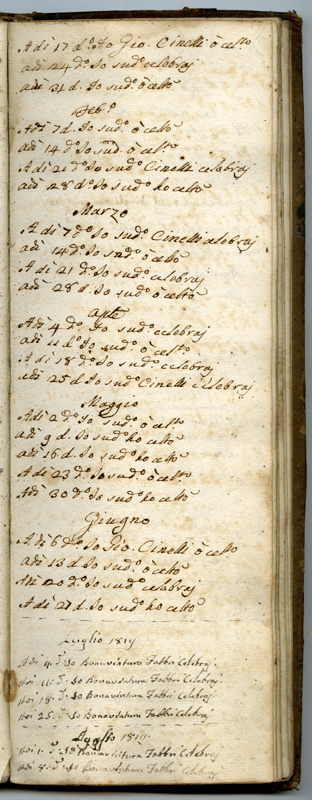 A di 17 d.º Io Gio. Cinelli ò celto
adi 24 d.º Io sud.º celebraj
adi 31 d. Io sud.º ò celto
Feb.º
A di 7 d. Io sud.º ò celto
adi 14 d.º Io sud. ò celto
A di 21 d.º Io sud.º Cinelli celebraj
adi 28 d.º Io sud.º ho celto
Marzo
A di 7 d.º Io sud.º Cinelli celebraj
adi 14 d.º Io sud.º ò celto
A di 21 d.º Io sud.º celebraj
adi 28 d. Io sud.º ò celto
Aple
A di 4 d.º Io sud.º celebraj
adi 11 d.º Io sud.º ò celto
A di 18 d.º Io sud.º celebraj
adi 25 d. Io sud.º Cinelli celebraj
Maggio
A di 2 d.º Io sud.º ò celto
adi 9 d. Io sud.º ho celto
adi 16 d. Io sud.º ho celto
A di 23 d.º Io sud.º ò celto
Adi 30 d.º Io sud.º ho celto
Giugno
A di 6 d.º Io Gio. Cinelli ò celto
adi 13 d. Io sud.º ò celto
Adi 20 d.º Io sud.º celebraj
A di 27 d. Io sud.º ho celto
Luglio 1819
Adi 4. d.º Io Bonaventura Fabbri Celebraj.
Adi 11. d.º Io Bonaventura Fabbri Celebraj.
Adi 18. d.º Io Bonaventura Fabbri Celebraj.
Adi 25. d.º Io Bonaventura Fabbri Celebraj.
Agosto 1819.
Adi 1. d.º Io Bonaventura Fabbri Celebraj
Adi 8. d.º Io Bonaventura Fabbri Celebraj